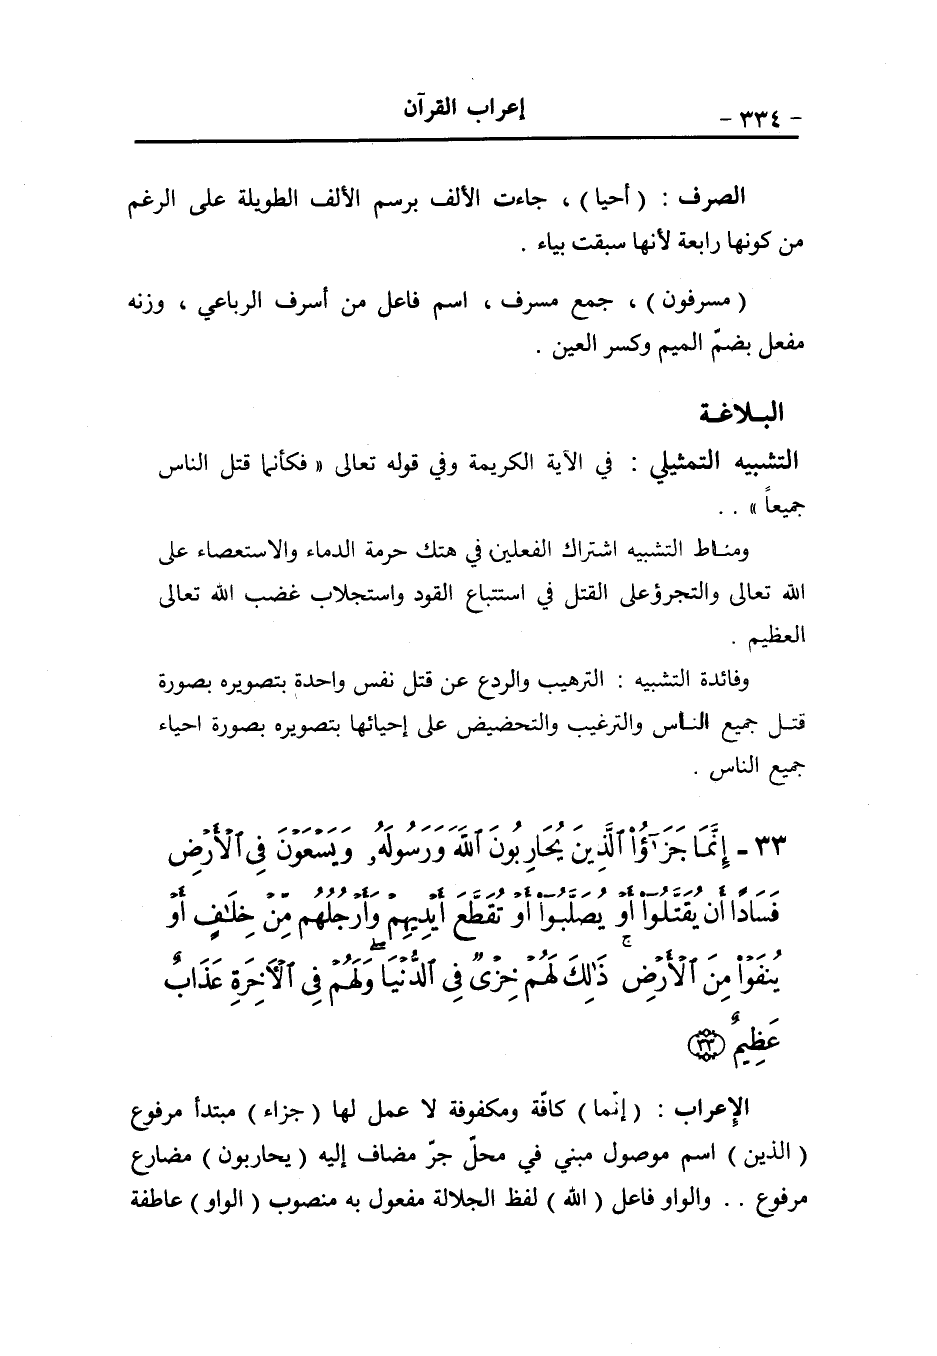 - ٣٣٤ -
إعراب القرآن
الصرف : ( أحيا ) ، جاءت الألف برسم الألف الطويلة على الرغم
من كونها رابعة لأنها سبقت بياء .
( مسرفون ) ، جمع مسرف ، اسم فاعل من أسرف الرباعي ، وزنه
مفعل بضمّ الميم وكسر العين .
البلاغة
التشبيه التمثيلي : في الآية الكريمة وفي قوله تعالى « فكأنما قتل الناس
جميعاً » . .
ومناط التشبيه اشتراك الفعلين في هتك حرمة الدماء والاستعصاء على
الله تعالى والتجرؤ على القتل في استتباع القود واستجلاب غضب الله تعالى
العظيم .
وفائدة التشبيه : الترهيب والردع عن قتل نفس واحدة بتصويره بصورة
قتل جميع الناس والترغيب والتحضيض على إحيائها بتصويره بصورة احياء
جميع الناس .
٣٣ - إِنَّمَا جَزَٰٓؤُا۟ ٱلَّذِينَ يُحَارِبُونَ ٱللَّهَ وَرَسُولَهُۥ وَيَسْعَوْنَ فِى ٱلْأَرْضِ
فَسَادًا أَن يُقَتَّلُوٓا۟ أَوْ يُصَلَّبُوٓا۟ أَوْ تُقَطَّعَ أَيْدِيهِمْ وَأَرْجُلُهُم مِّنْ خِلَٰفٍ أَوْ
يُنفَوْا۟ مِنَ ٱلْأَرْضِ ۚ ذَٰلِكَ لَهُمْ خِزْىٌ فِى ٱلدُّنْيَا ۖ وَلَهُمْ فِى ٱلْءَاخِرَةِ عَذَابٌ
عَظِيمٌ ﴿٣٣﴾
الإعراب : ( إنّما ) كافّة ومكفوفة لا عمل لها ( جزاء ) مبتدأ مرفوع
( الذين ) اسم موصول مبني في محلّ جرّ مضاف إليه ( يحاربون ) مضارع
مرفوع . . والواو فاعل ( الله ) لفظ الجلالة مفعول به منصوب ( الواو ) عاطفة